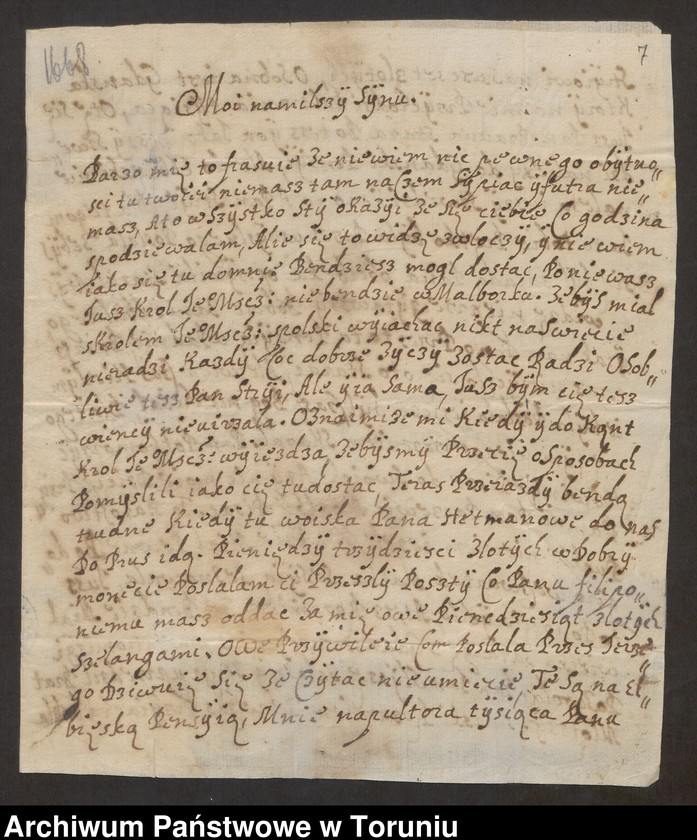 1668
7
Moi namilszÿ Sÿnu.
Barzo mię to frasuie ze niewiem nic pewnego obÿtno„
sci tu twoiei niemasz tam na Czem Sÿpiac ÿ futra nie„
masz, Ato wszÿstko Stÿ okazÿi ze Się ciebię Co godzina
spodziewalam, Alie się to widzę zwloczÿ, ÿ nie wiem
iako się tu domnię Bendziesz mogl dostac, Poniewasz
Iusz Krol Je Mscz: niebendzie w Malborku. Zebÿs mial
skrolem Je Mscz: spolski wÿiachac nikt na Swiecie
nieradzi Kazdÿ Coc dobrze Zÿczÿ zostac Radzi Osob„
liwie tesz Pan Strÿi, Ale ÿ ia Sama, Iusz bÿm cię tesz
wiencÿ nievirzala. Oznaimi ze mi Kiedÿ ÿ do Kąnt
Krol Je Mscz wÿiezdza, Zebÿsmÿ Przecię o Sposobach
Pomÿslili iako cię tu dostac, Teras Przeiazdÿ bendą
trudne Kiedÿ tu woiska Pana Hetmanowe do nas
Do Prus idą. Pieniędzÿ trzÿdziesci zlotÿch w Dobrÿ
monecie Poslalam ci Przeszlÿ Posztÿ Co Panu filipo„
niemu masz oddac Za mię owe Piendziesiąt zlotÿch
Szelangami. Owe Przÿwileie Com Poslala Przes Jerze„
go Dziwuię Się Ze Czÿtac nie umiecie, Te Są na El„
bięską Pensÿią, Mnie napultora tÿsiąca Panu
Archiwum Państwowe w Toruniu